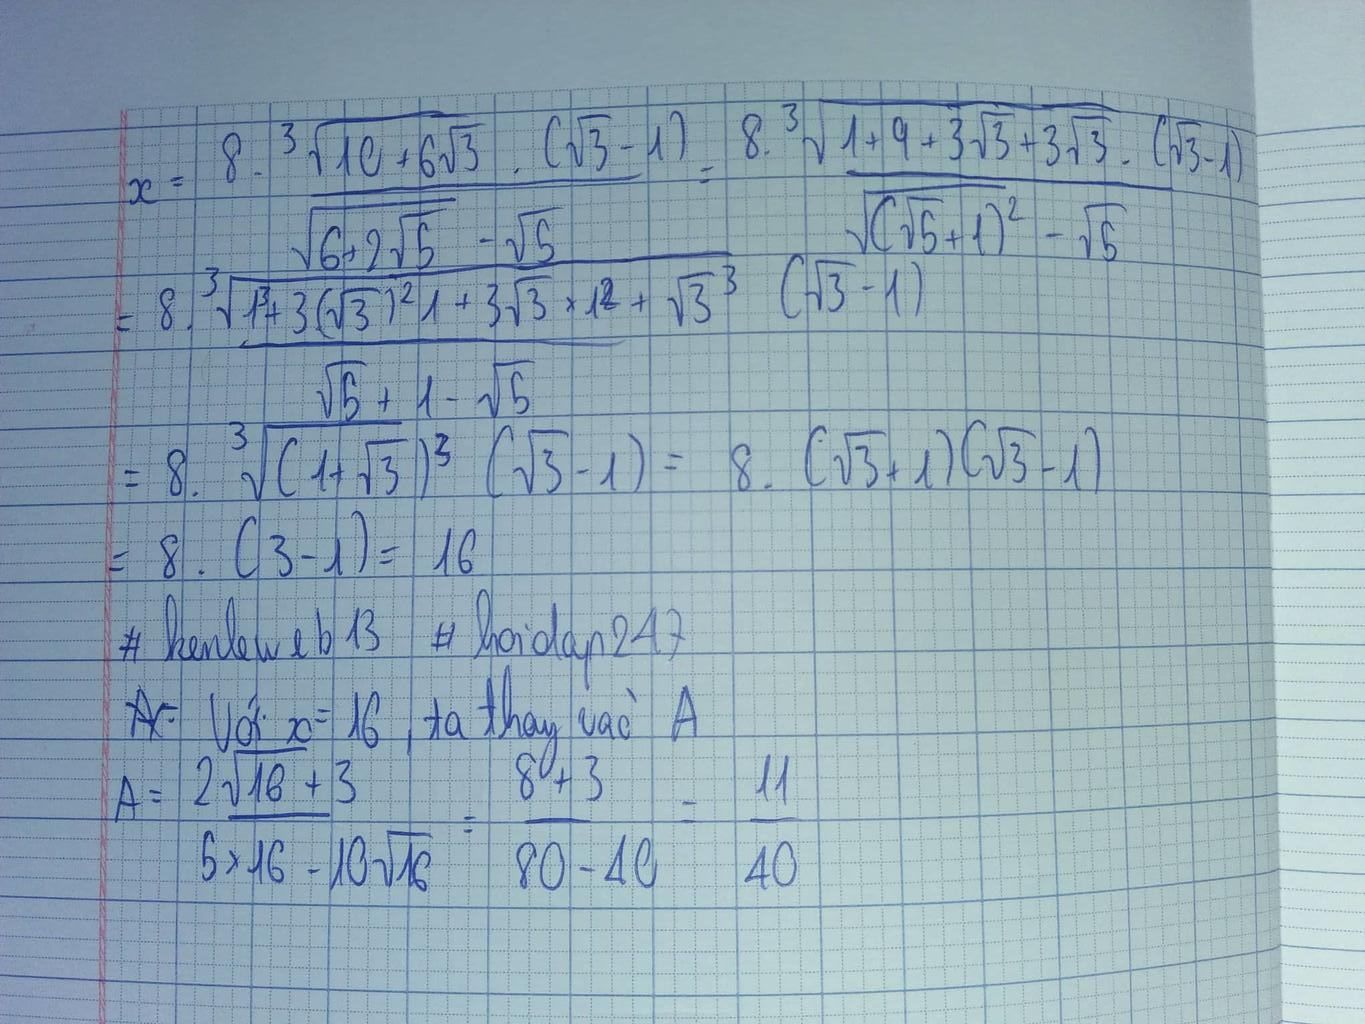 x = 8.∛(10+6√3) . (√3-1) / (√(6+2√5) - √5) = 8.∛(1+9+3√3+3√3) . (√3-1) / (√((√5+1)²) - √5)
= 8.∛(1³+3(√3)²1+3√3×1²+√3³) (√3-1) / (√5+1-√5)
= 8. ∛((1+√3)³) (√3-1) = 8. (√3+1)(√3-1)
= 8. (3-1) = 16
# kenleweb13 # hoidap247
Với x=16, ta thay vào A
A = (2√16+3) / (5×16-10√16) = (8+3) / (80-40) = 11/40